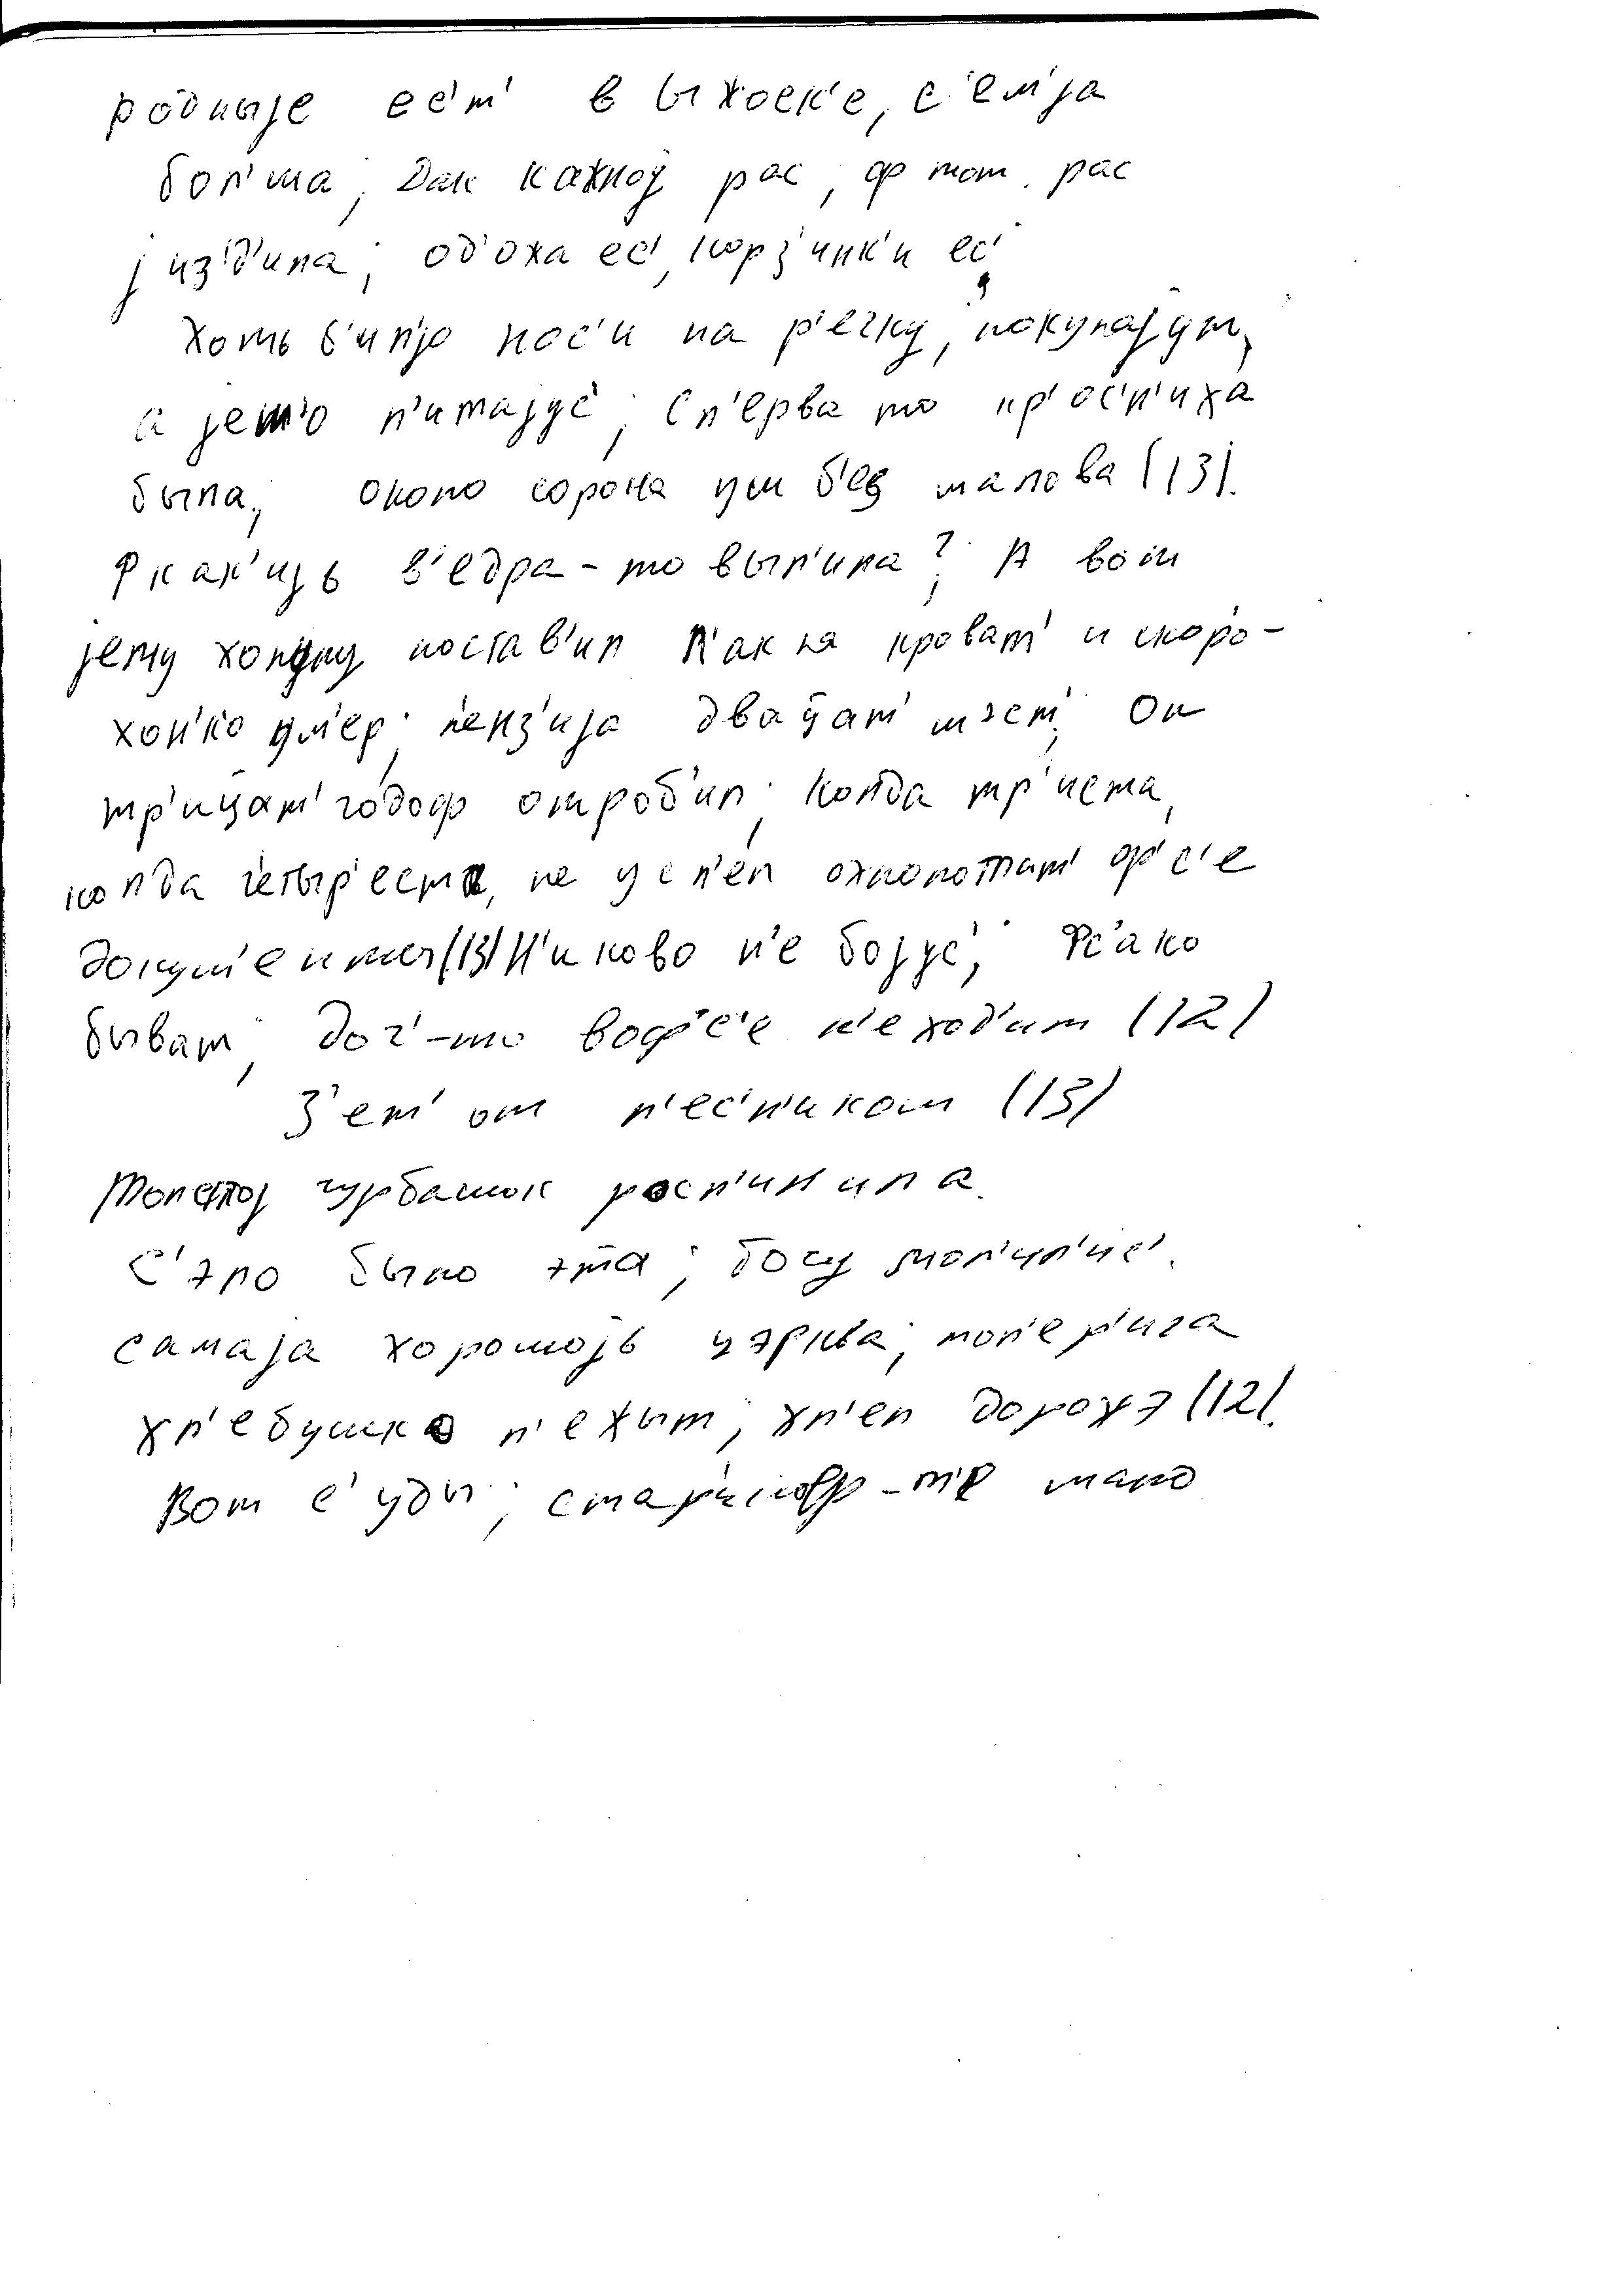 родныjе ес'т' в ыжоск'е, с'ем'jа
бол'ша; Дак кажноj рас, ф тот рас
jиз'д'ила; од'ожа ес', корз'инк'и ес'
хоть б'ил'jо нос'и на р'ечку, покупаjут,
а jешш'о п'итаjус'; Сп'ерва то кр'ос'н'иха
была; около сорока уш б'ез малова (13).
Ф как'иjь в'едра-то выл'ила? ; А вот
jему холодну постав'ил л'ак на кроват' и скоро-
хон'ко ум'ер; п'енз'иjа двацат' шэст'; Он
тр'ицат' годоф отроб'ил; Колда тр'иста,
колда четыр'еста, не усп'ел охлопотат' ф'с'е
докум'енты (13) Н'иково н'е боjус'; Фс'ако
быват; доч'-то воф'с'е н'е ход'ит (12)
З'ет' от п'ес'н'иком (13)
Толстоj чурбашок росп'ил'ила.
С'эло было эта; богу мол'ил'ис'.
самаjа хорошоjь цэрква; мол'ер'ига
хл'ебушко л'ежыт; хл'еп дорожэ (12).
Вот с'уды; стар'иков-т'е мало